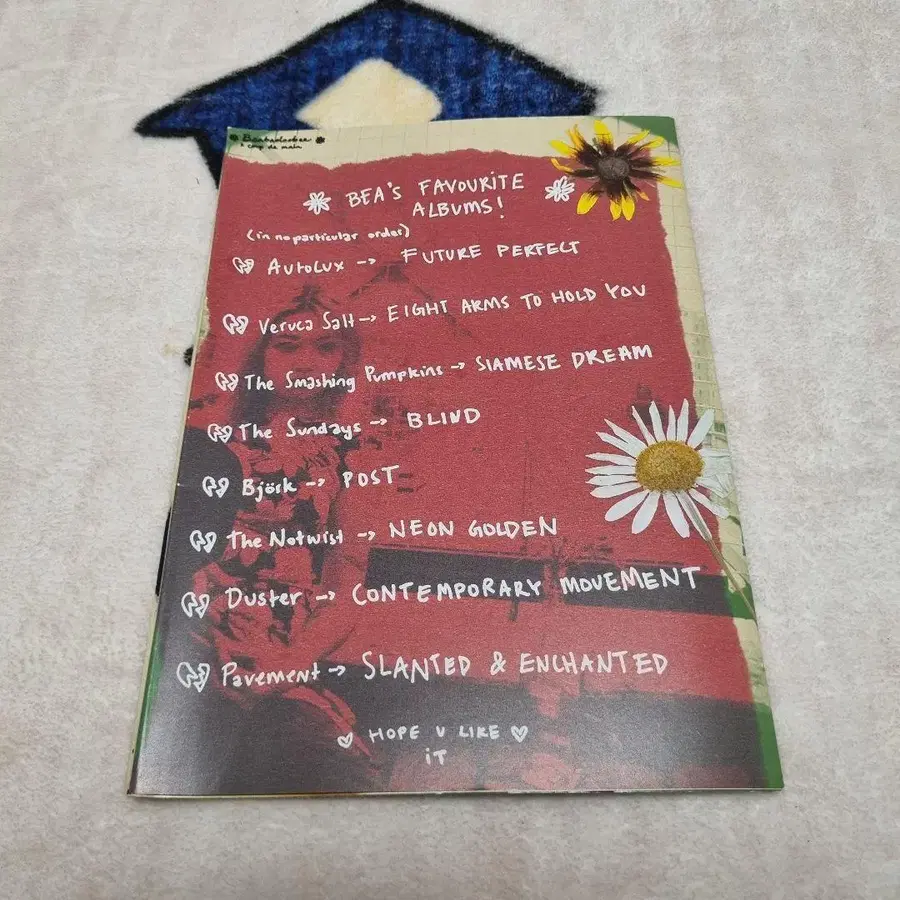 Beabadoobee
x coup de main
BEA'S FAVOURITE
ALBUMS!
(in no particular order)
Autolux -> FUTURE PERFECT
Veruca Salt -> EIGHT ARMS TO HOLD YOU
The Smashing Pumpkins -> SIAMESE DREAM
The Sundays -> BLIND
Björk -> POST
The Notwist -> NEON GOLDEN
Duster -> CONTEMPORARY MOVEMENT
Pavement -> SLANTED & ENCHANTED
HOPE U LIKE
iT